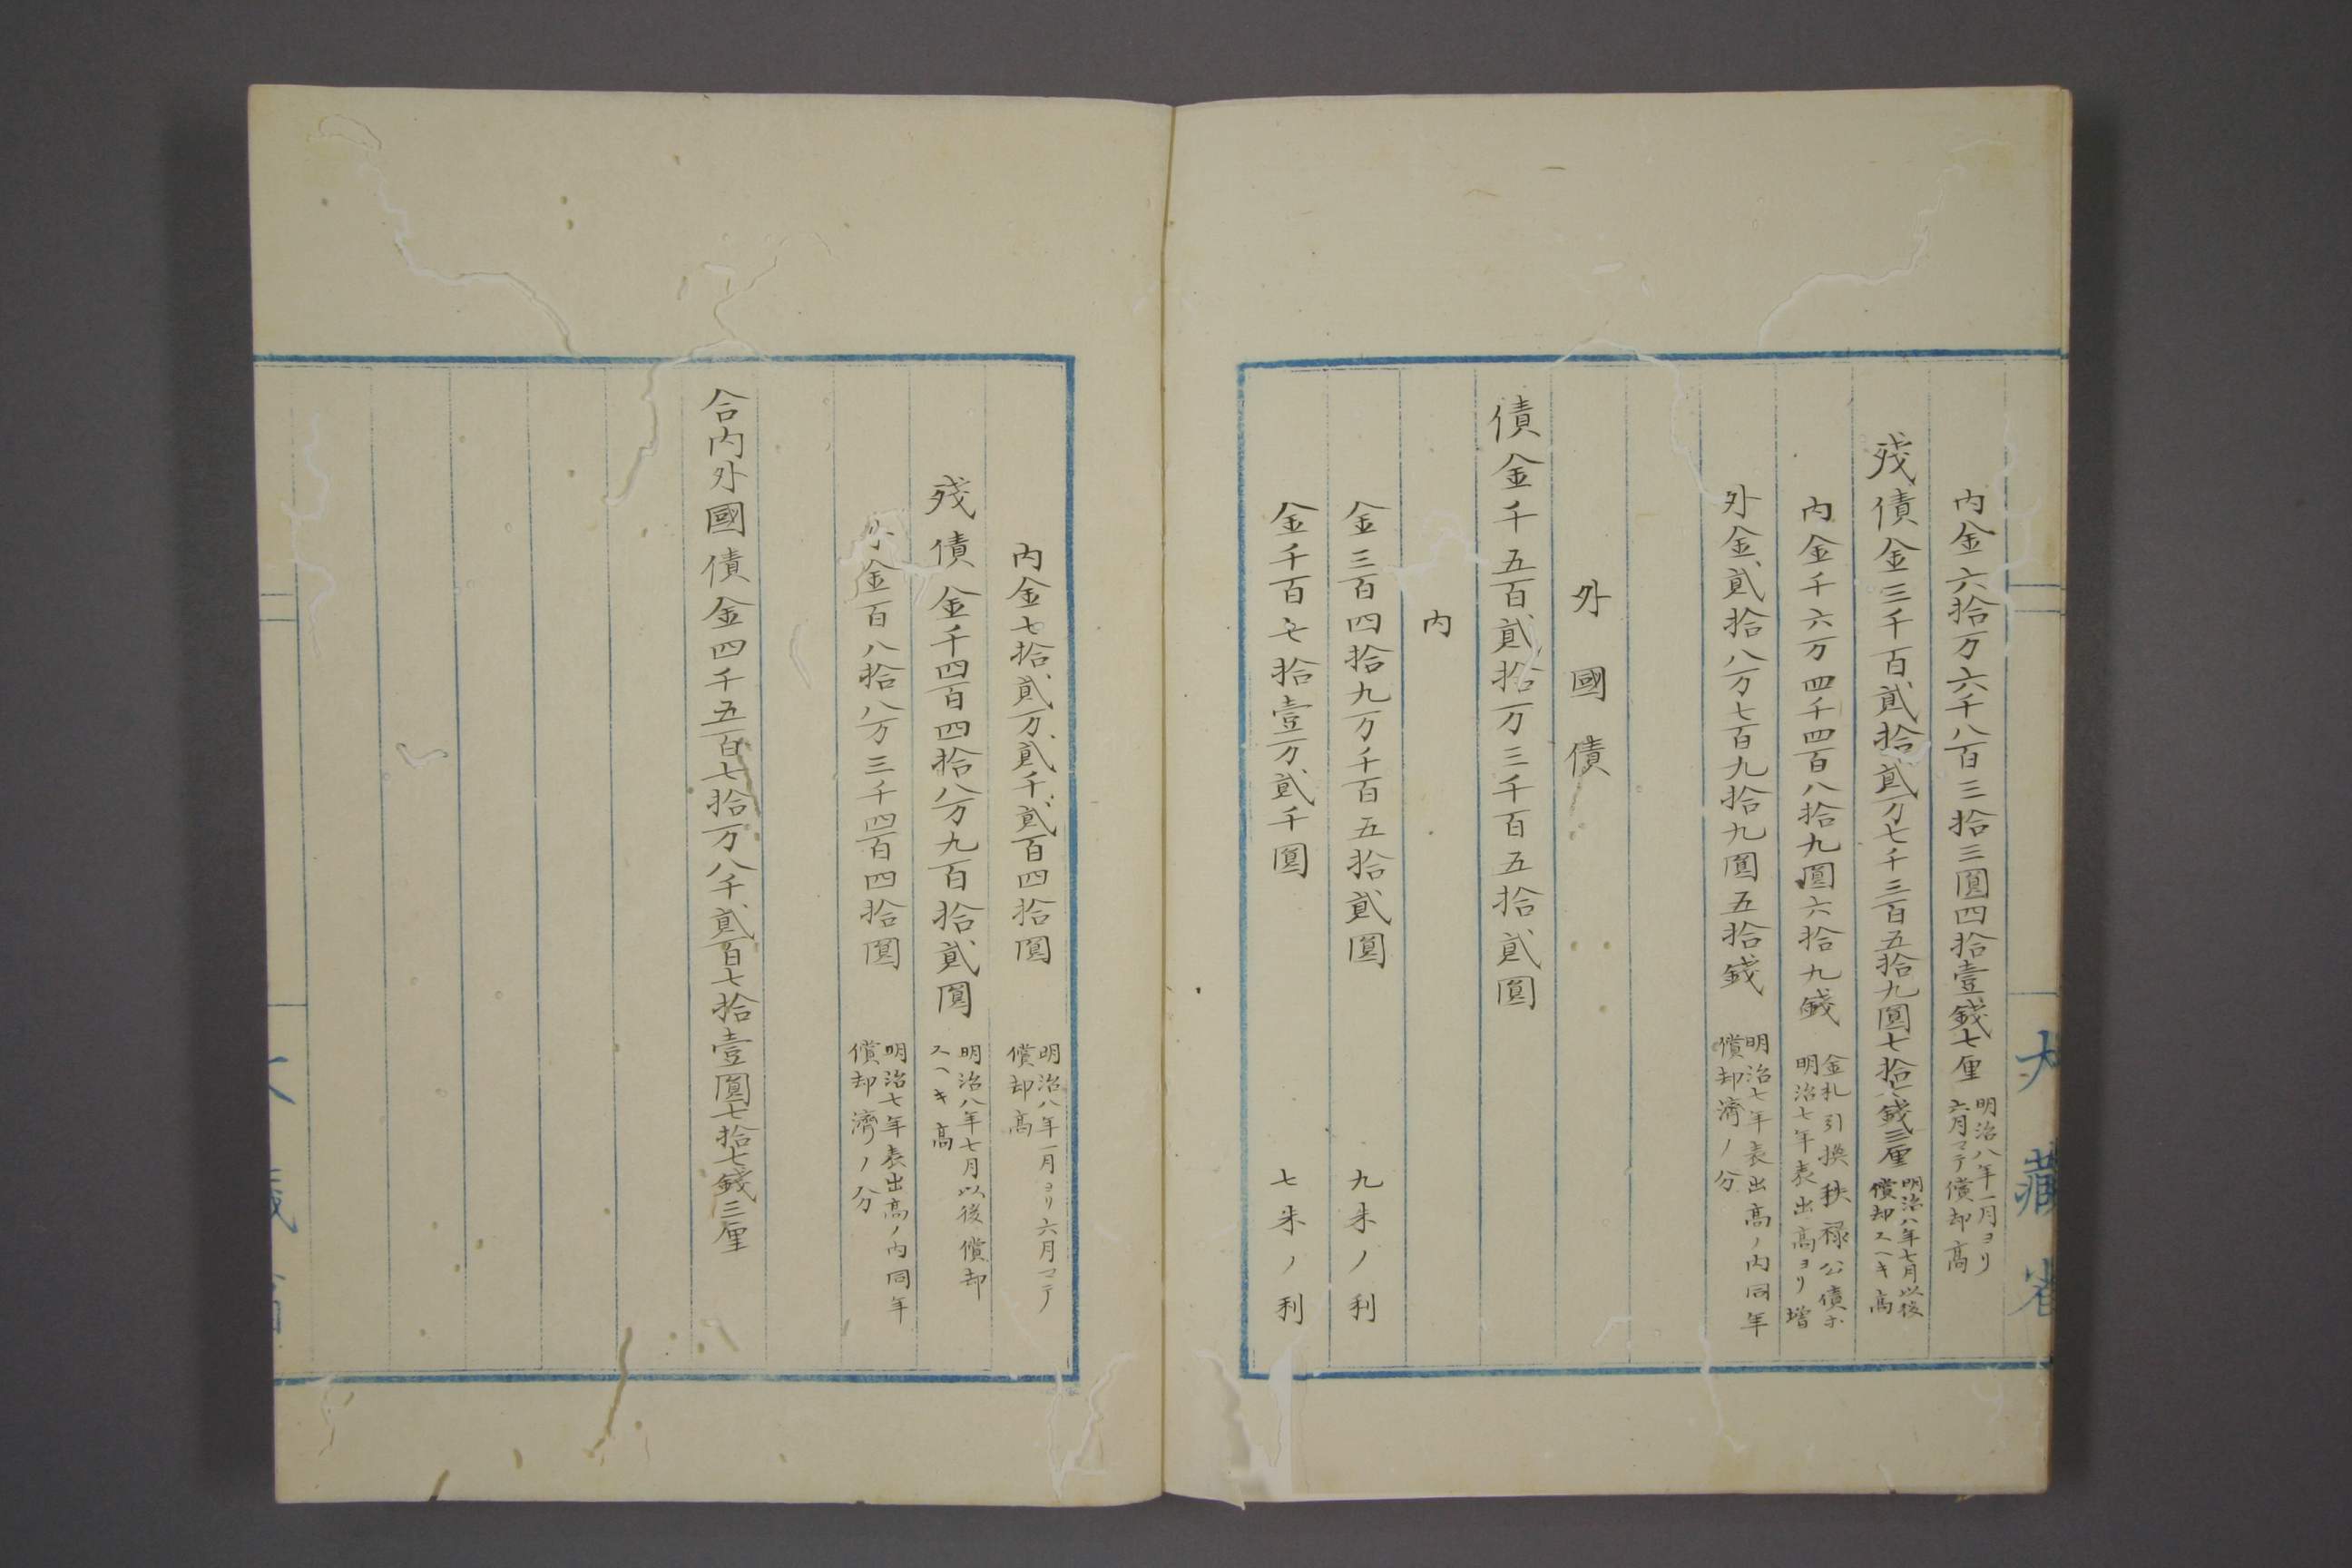 内金六拾万六千八百三拾三圓四拾壹錢七厘
明治八年一月ヨリ
六月マテ償却高
残債金三千百貳拾貳万七千三百五拾九圓七拾七錢三厘
明治八年七月以後
償却スヘキ高
内金千六万四千四百八拾九圓六拾九錢
金札引換秩禄公債ホ
明治七年表出高ヨリ増
外金貳拾八万七百九拾九圓五拾錢
明治七年表出高ノ内同年
償却濟ノ分
外國債
債金千五百貳拾万三千百五拾貳圓
内
金三百四拾九万千百五拾貳圓 九朱ノ利
金千百七拾壹万貳千圓 七朱ノ利
大藏省
内金七拾貳万貳千貳百四拾圓
明治八年一月ヨリ六月マテ
償却高
残債金千四百四拾八万九百拾貳圓
明治八年七月以後償却
スヘキ高
外金百八拾八万三千四百四拾圓
明治七年表出高ノ内同年
償却濟ノ分
合内外國債金四千五百七拾万八千貳百七拾壹圓七拾七錢三厘